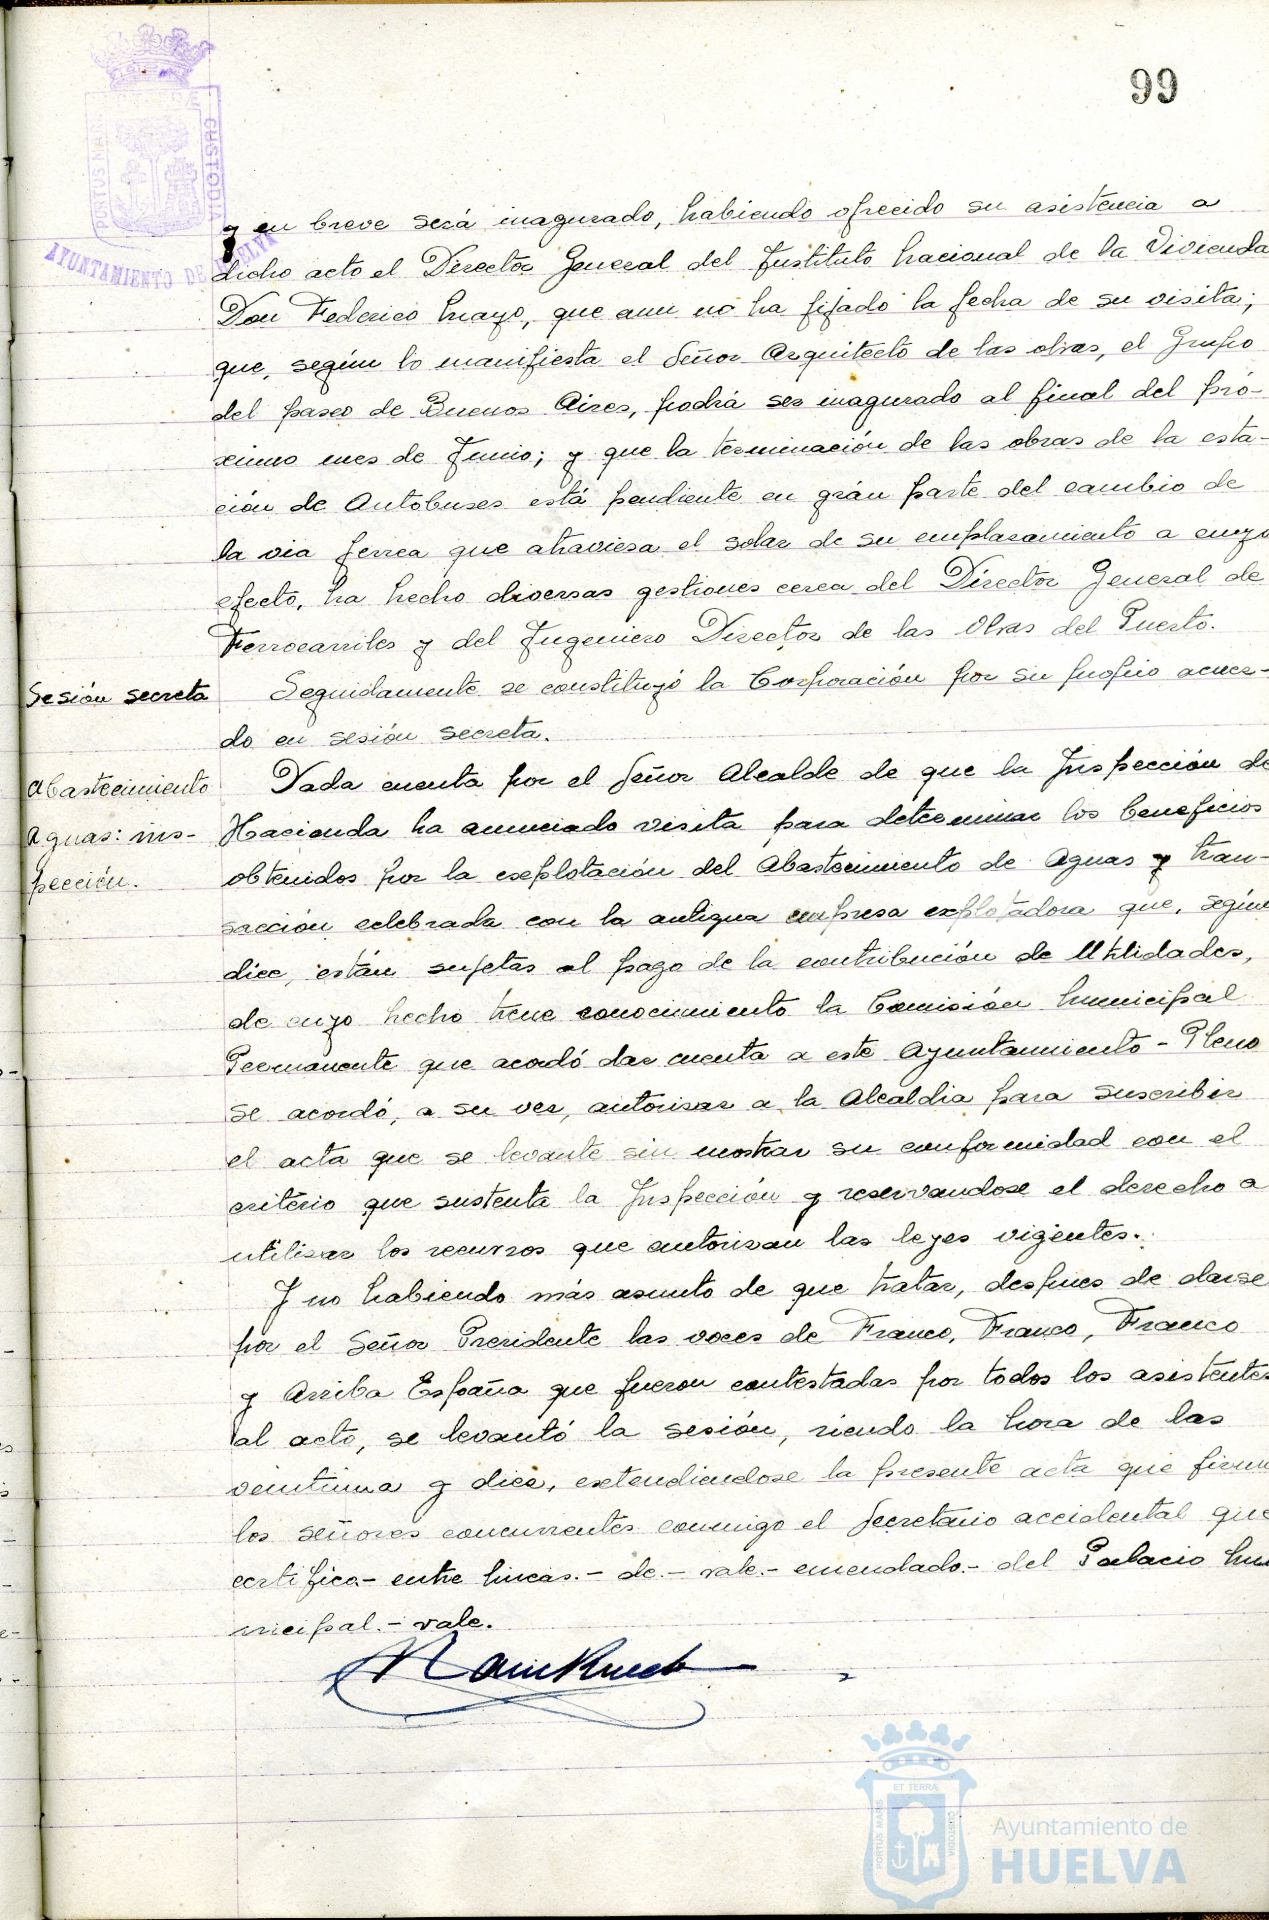 99
PORTUS MARIS
CUSTODIA
AYUNTAMIENTO DE HUELVA
y en breve será inagurado, habiendo ofrecido su asistencia a
dicho acto el Director General del Instituto Nacional de la Vivienda
Don Federico Mayo, que aun no ha fijado la fecha de su visita;
que, según lo manifiesta el Señor Arquitecto de las obras, el Grupo
del paseo de Buenos Aires, podrá ser inagurado al final del pró-
ximo mes de Junio; y que la terminación de las obras de la esta-
ción de Autobuses está pendiente en grán parte del cambio de
la via ferrea que atraviesa el solar de su emplazamiento a cuyo
efecto, ha hecho diversas gestiones cerca del Director General de
Ferrocarriles y del Ingeniero Director de las Obras del Puerto.
Sesión secreta
Seguidamente se constituyó la Corporación por su propio acuer-
do en sesión secreta.
Abastecimiento
Aguas: ins-
pección.
Dada cuenta por el Señor Alcalde de que la Inspección de
Hacienda ha anunciado visita para determinar los beneficios
obtenidos por la explotación del Abastecimiento de Aguas y tran-
sacción celebrada con la antigua empresa explotadora que, según
dice, están sujetas al pago de la contribución de Utilidades,
de cuyo hecho tiene conocimiento la Comisión Municipal
Permanente que acordó dar cuenta a este Ayuntamiento - Pleno
se acordó, a su vez, autorizar a la Alcaldia para suscribir
el acta que se levante sin mostrar su conformidad con el
criterio que sustenta la Inspección y reservandose el derecho a
utilizar los recursos que autorizan las leyes vigentes.
Y no habiendo más asunto de que tratar, despues de darse
por el Señor Presidente las voces de Franco, Franco, Franco
y Arriba España que fueron contestadas por todos los asistentes
al acto, se levantó la sesión, siendo la hora de las
veintiuna y diez, extendiendose la presente acta que firman
los señores concurrentes conmigo el Secretario accidental que
certifico.- entre lineas.- de.- vale.- enmendado.- del Palacio Mu
nicipal.- vale.
ET TERRÆ
PORTUS MARIS
CUSTODIA
Ayuntamiento de
HUELVA